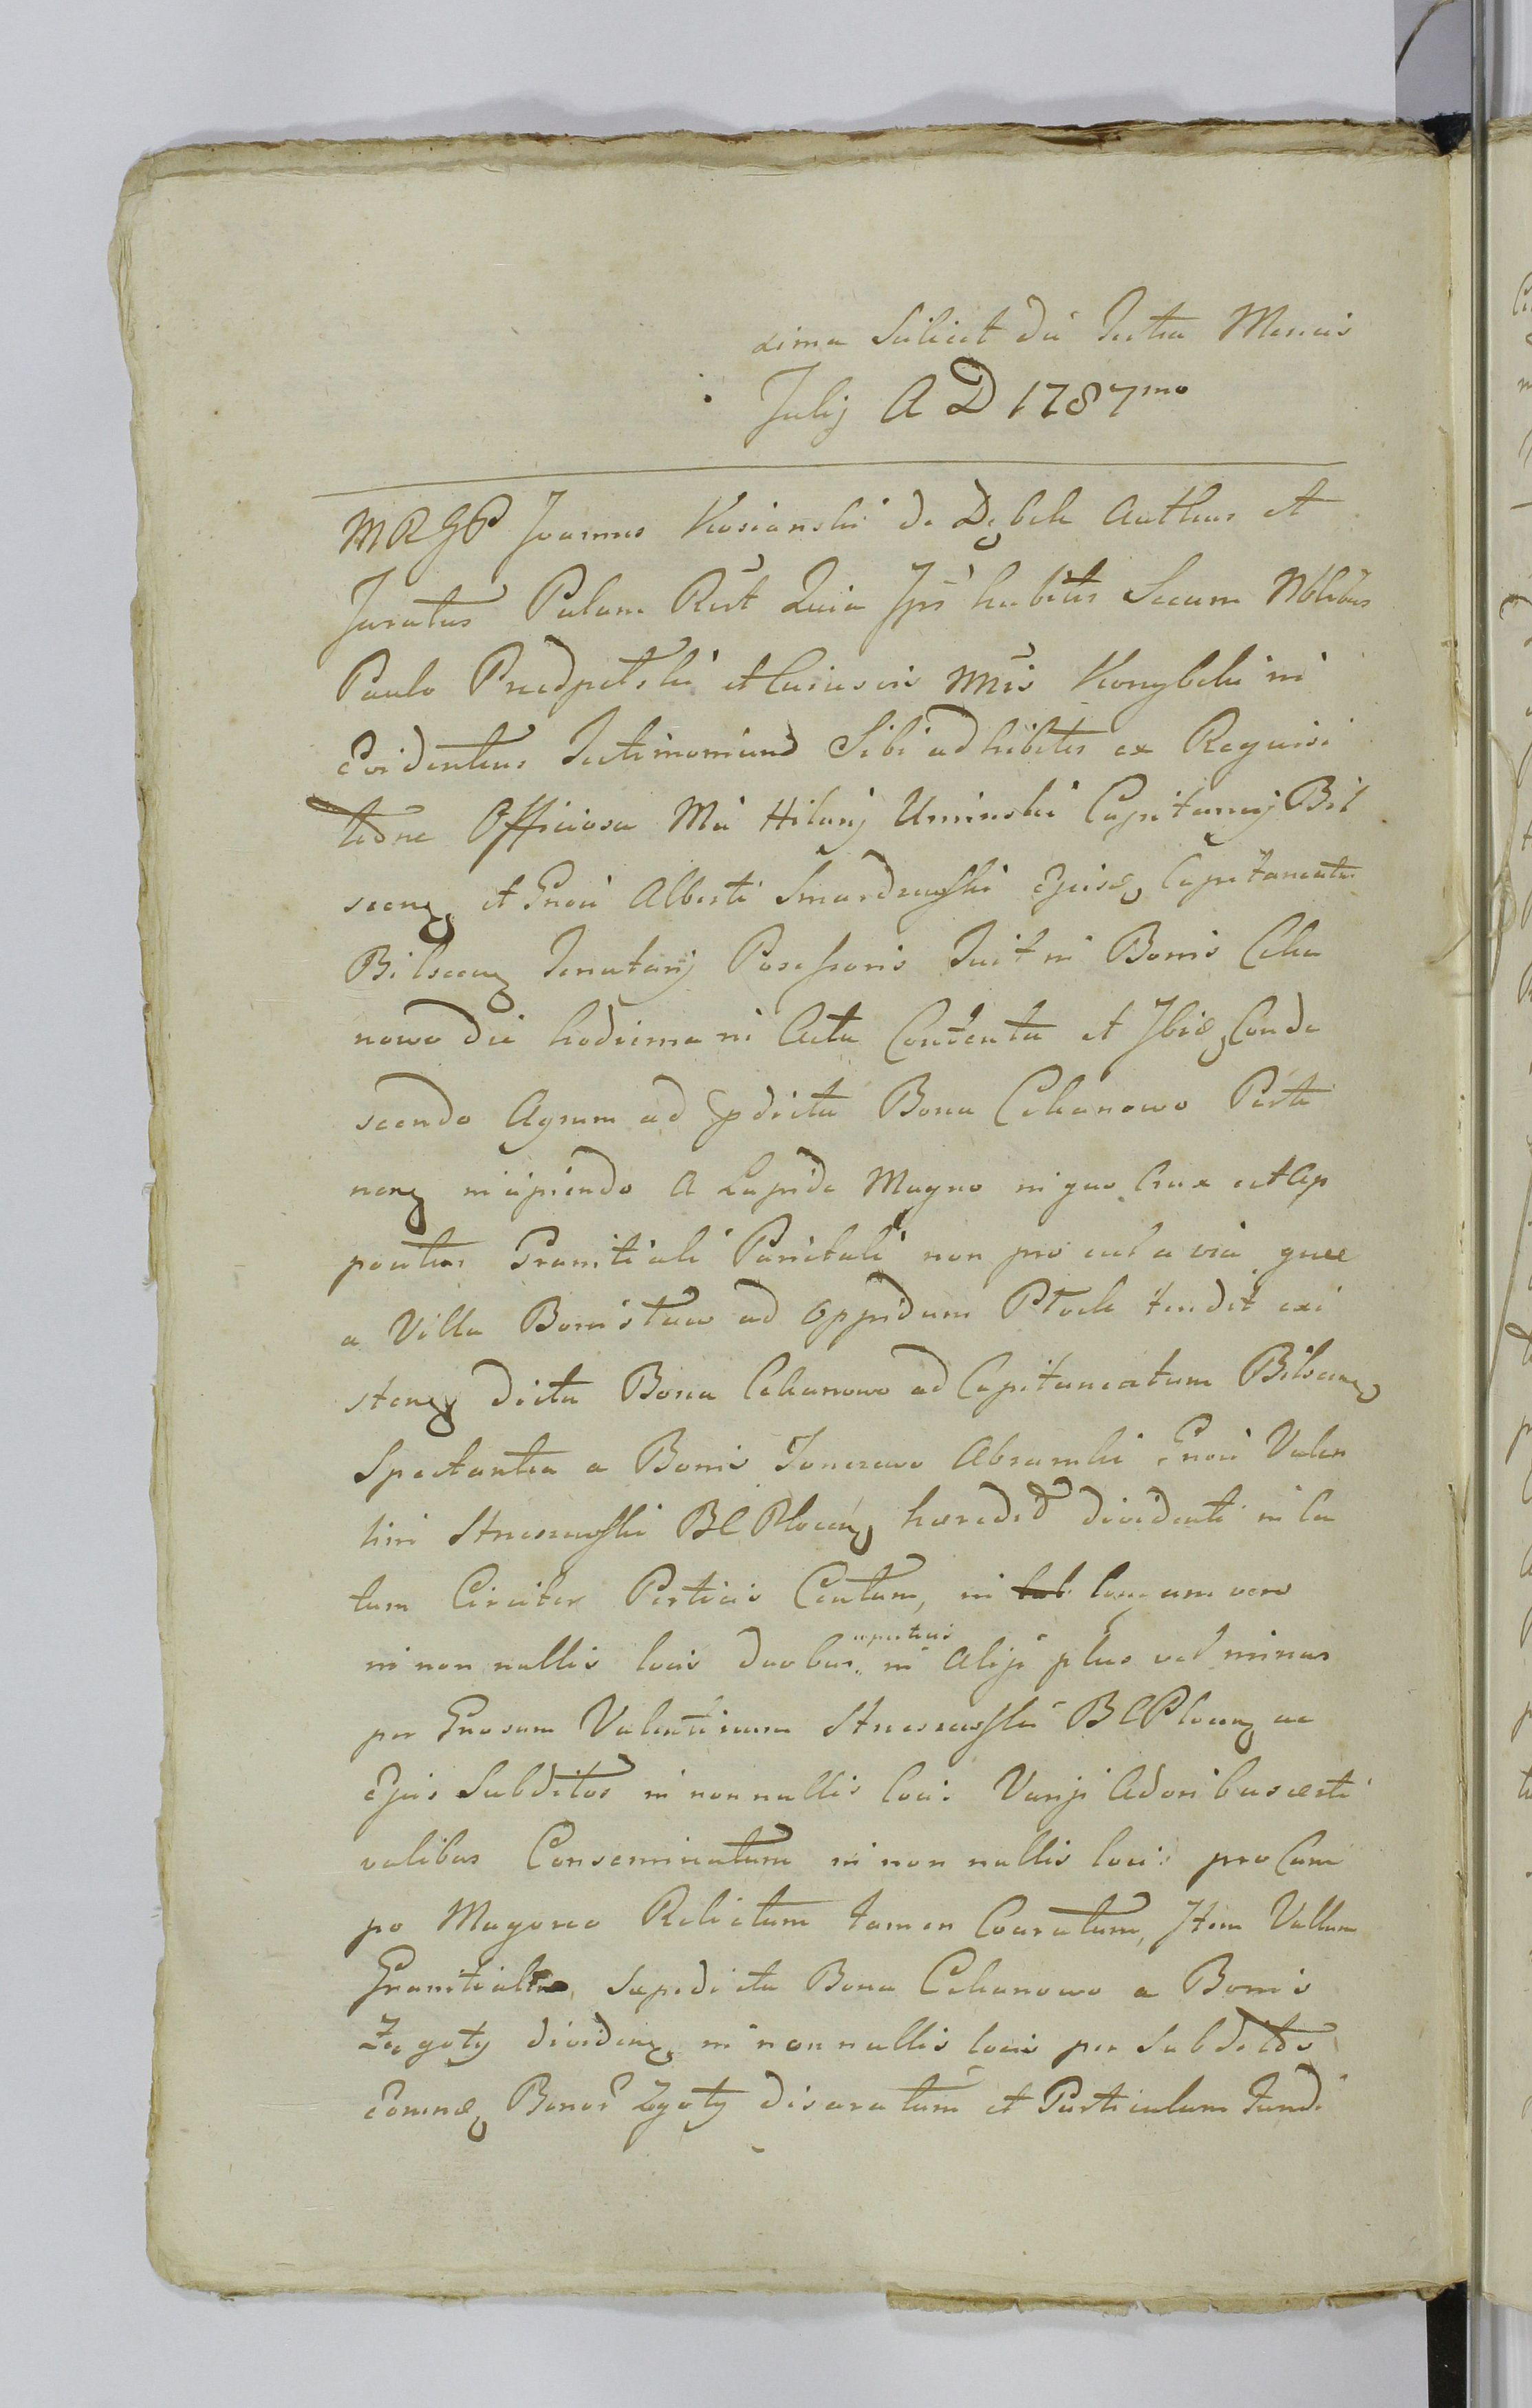 xima Scilicet die Tertia Mensis
Julij A D 1787mo
MRGP Joannes Kosianski de Dębsk Authens et
Juratus Palam Rect Quia Ips habitis Secum Nblibus
Paulo Przedpelski et Casimiro Mris Konybelki in
Evidentius Testimonium Sibi adhibitis ex Requisi
tione Officiosa Mci Hilarij Uminski Capitanej Bil
scen et Gnsi Alberti Smardzewski Ejusd Capitaneatus
Bilscen Tenutarij Possessoris Fuit in Bonis Ceka
nowo die hodierna in Actu Contenta et Ibid Conde
scendo Agrum ad pdicta Bona Cekanowo Perti
nen incipiendo A Lapide Magno in quo Crux et Cip
pentur Granitiali Parietali non pro cul a via quae
a Villa Boristaw ad Oppidum Płock tendit exi
sten dicta Bona Cekanowo ad Capitaneatum Bilscen
Spectantia a Bonis Joncewo Abramki Gnsi Valen
tini Strzeszewski BC Plocen haeredit dividenti in la
tum Circiter Perticis Centum, in longum vero
in non nullis locis duobus perticis in Alijs plus vel minus
per Gnosum Valentinum Strzeszewski BCPlocen ac
Ejus Subditos in nonnullis locis Varijs Adoribus aesti
valibus Conseminatum in non nullis locis pro Cam
po Magoreo Relictum tamen Coaratum, Item Vallum
Granitialem, Sepedicta Bona Cekanowo a Bonis
Zągoty dividen, in nonnullis locis per Subditos
Eorumd Bonor Zgoty disaratum et Particulam Fundi